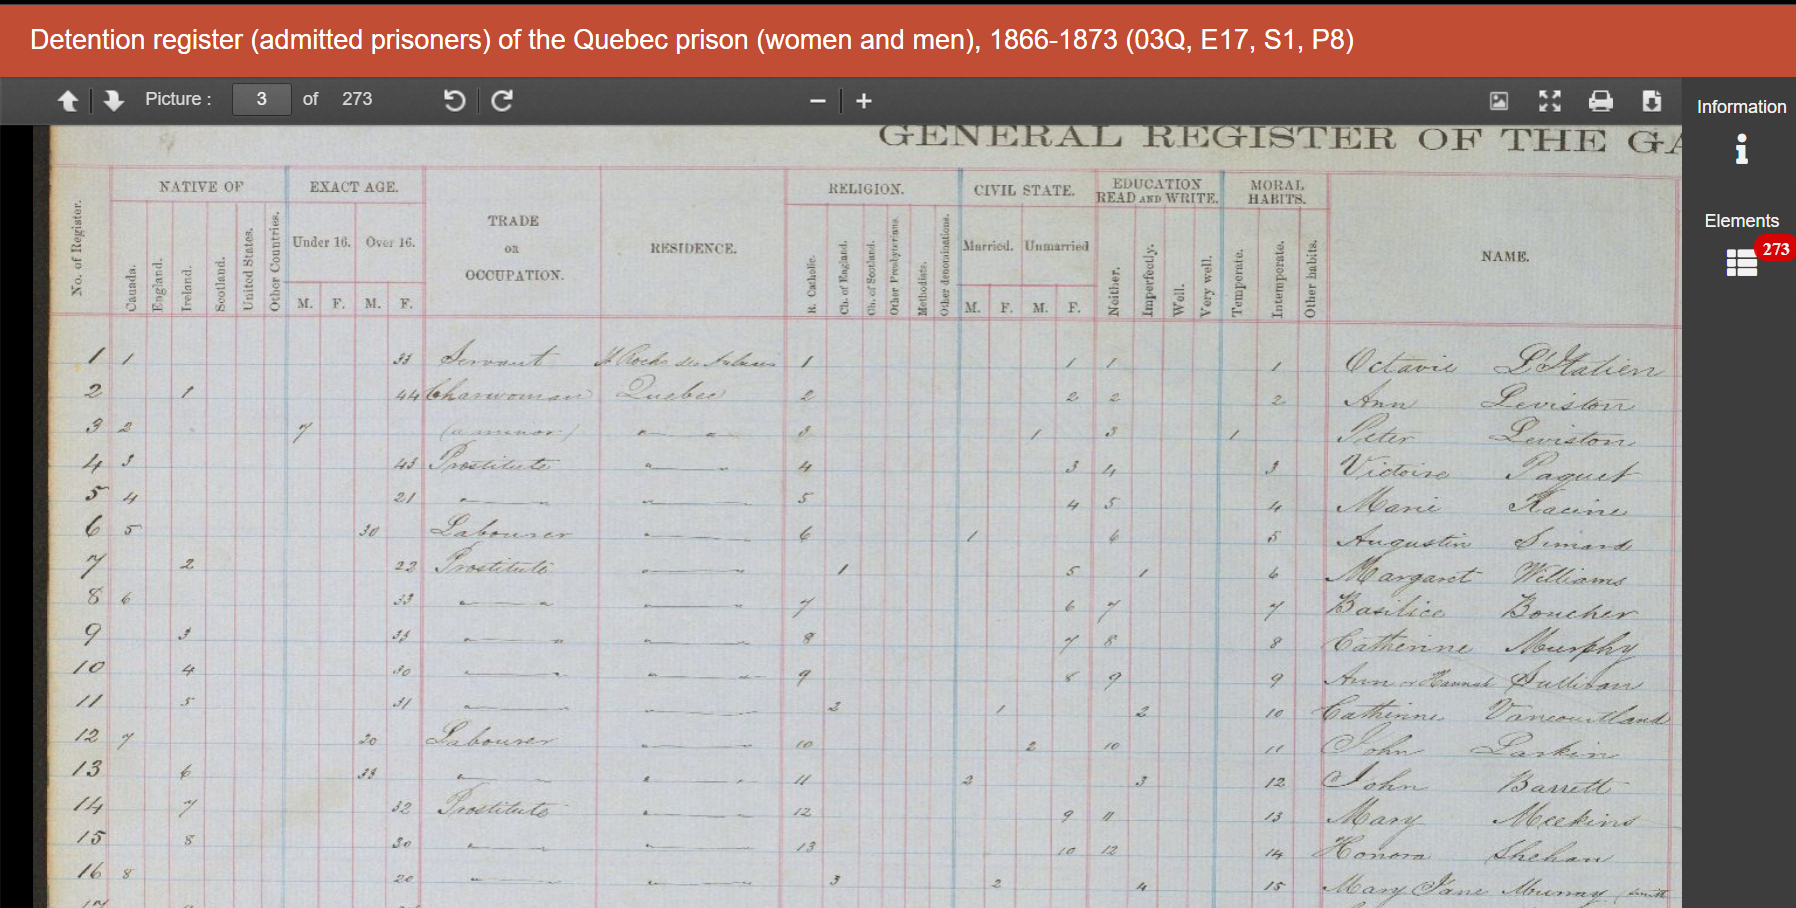 Detention register (admitted prisoners) of the Quebec prison (women and men), 1866-1873 (03Q, E17, S1, P8)
Picture : 3 of 273
Information
Elements
273
GENERAL REGISTER OF THE GA
No. of Register. NATIVE OF EXACT AGE. TRADE OR OCCUPATION. RESIDENCE. RELIGION. CIVIL STATE. EDUCATION READ AND WRITE. MORAL HABITS. NAME.
Canada. England. Ireland. Scotland. United States. Other Countries. Under 16. Over 16. R. Catholic. Ch. of England. Ch. of Scotland. Other Presbyterians. Methodists. Other denominations. Married. Unmarried Neither. Imperfectly. Well. Very well. Temperate. Intemperate. Other habits.
M. F. M. F. M. F. M. F.
1 1 33 Servant St Rochs des Aulnais 1 1 1 1 Octavie L'Italien
2 1 44 Charwoman Quebec 2 2 2 2 Ann Leviston
3 2 7 (a minor) " " 3 1 3 1 Peter Leviston
4 3 43 Prostitute " " 4 3 4 3 Victoire Paquet
5 4 21 " " " " 5 4 5 4 Marie Racine
6 5 30 Labourer " " 6 1 6 5 Augustin Simard
7 2 22 Prostitute " " 1 5 1 6 Margaret Williams
8 6 33 " " " " 7 6 7 7 Basilice Boucher
9 3 35 " " " " 8 7 8 8 Catherine Murphy
10 4 30 " " " " 9 8 9 9 Ann or Hannah Sullivan
11 5 31 " " " " 2 1 2 10 Catherine Vancourtland
12 7 20 Labourer " " 10 2 10 11 John Larkin
13 6 33 " " " " 11 2 3 12 John Barrett
14 7 32 Prostitute " " 12 9 11 13 Mary Meekins
15 8 30 " " " " 13 10 12 14 Honora Shehan
16 8 20 " " " " 3 2 4 15 Mary Jane Murray
17